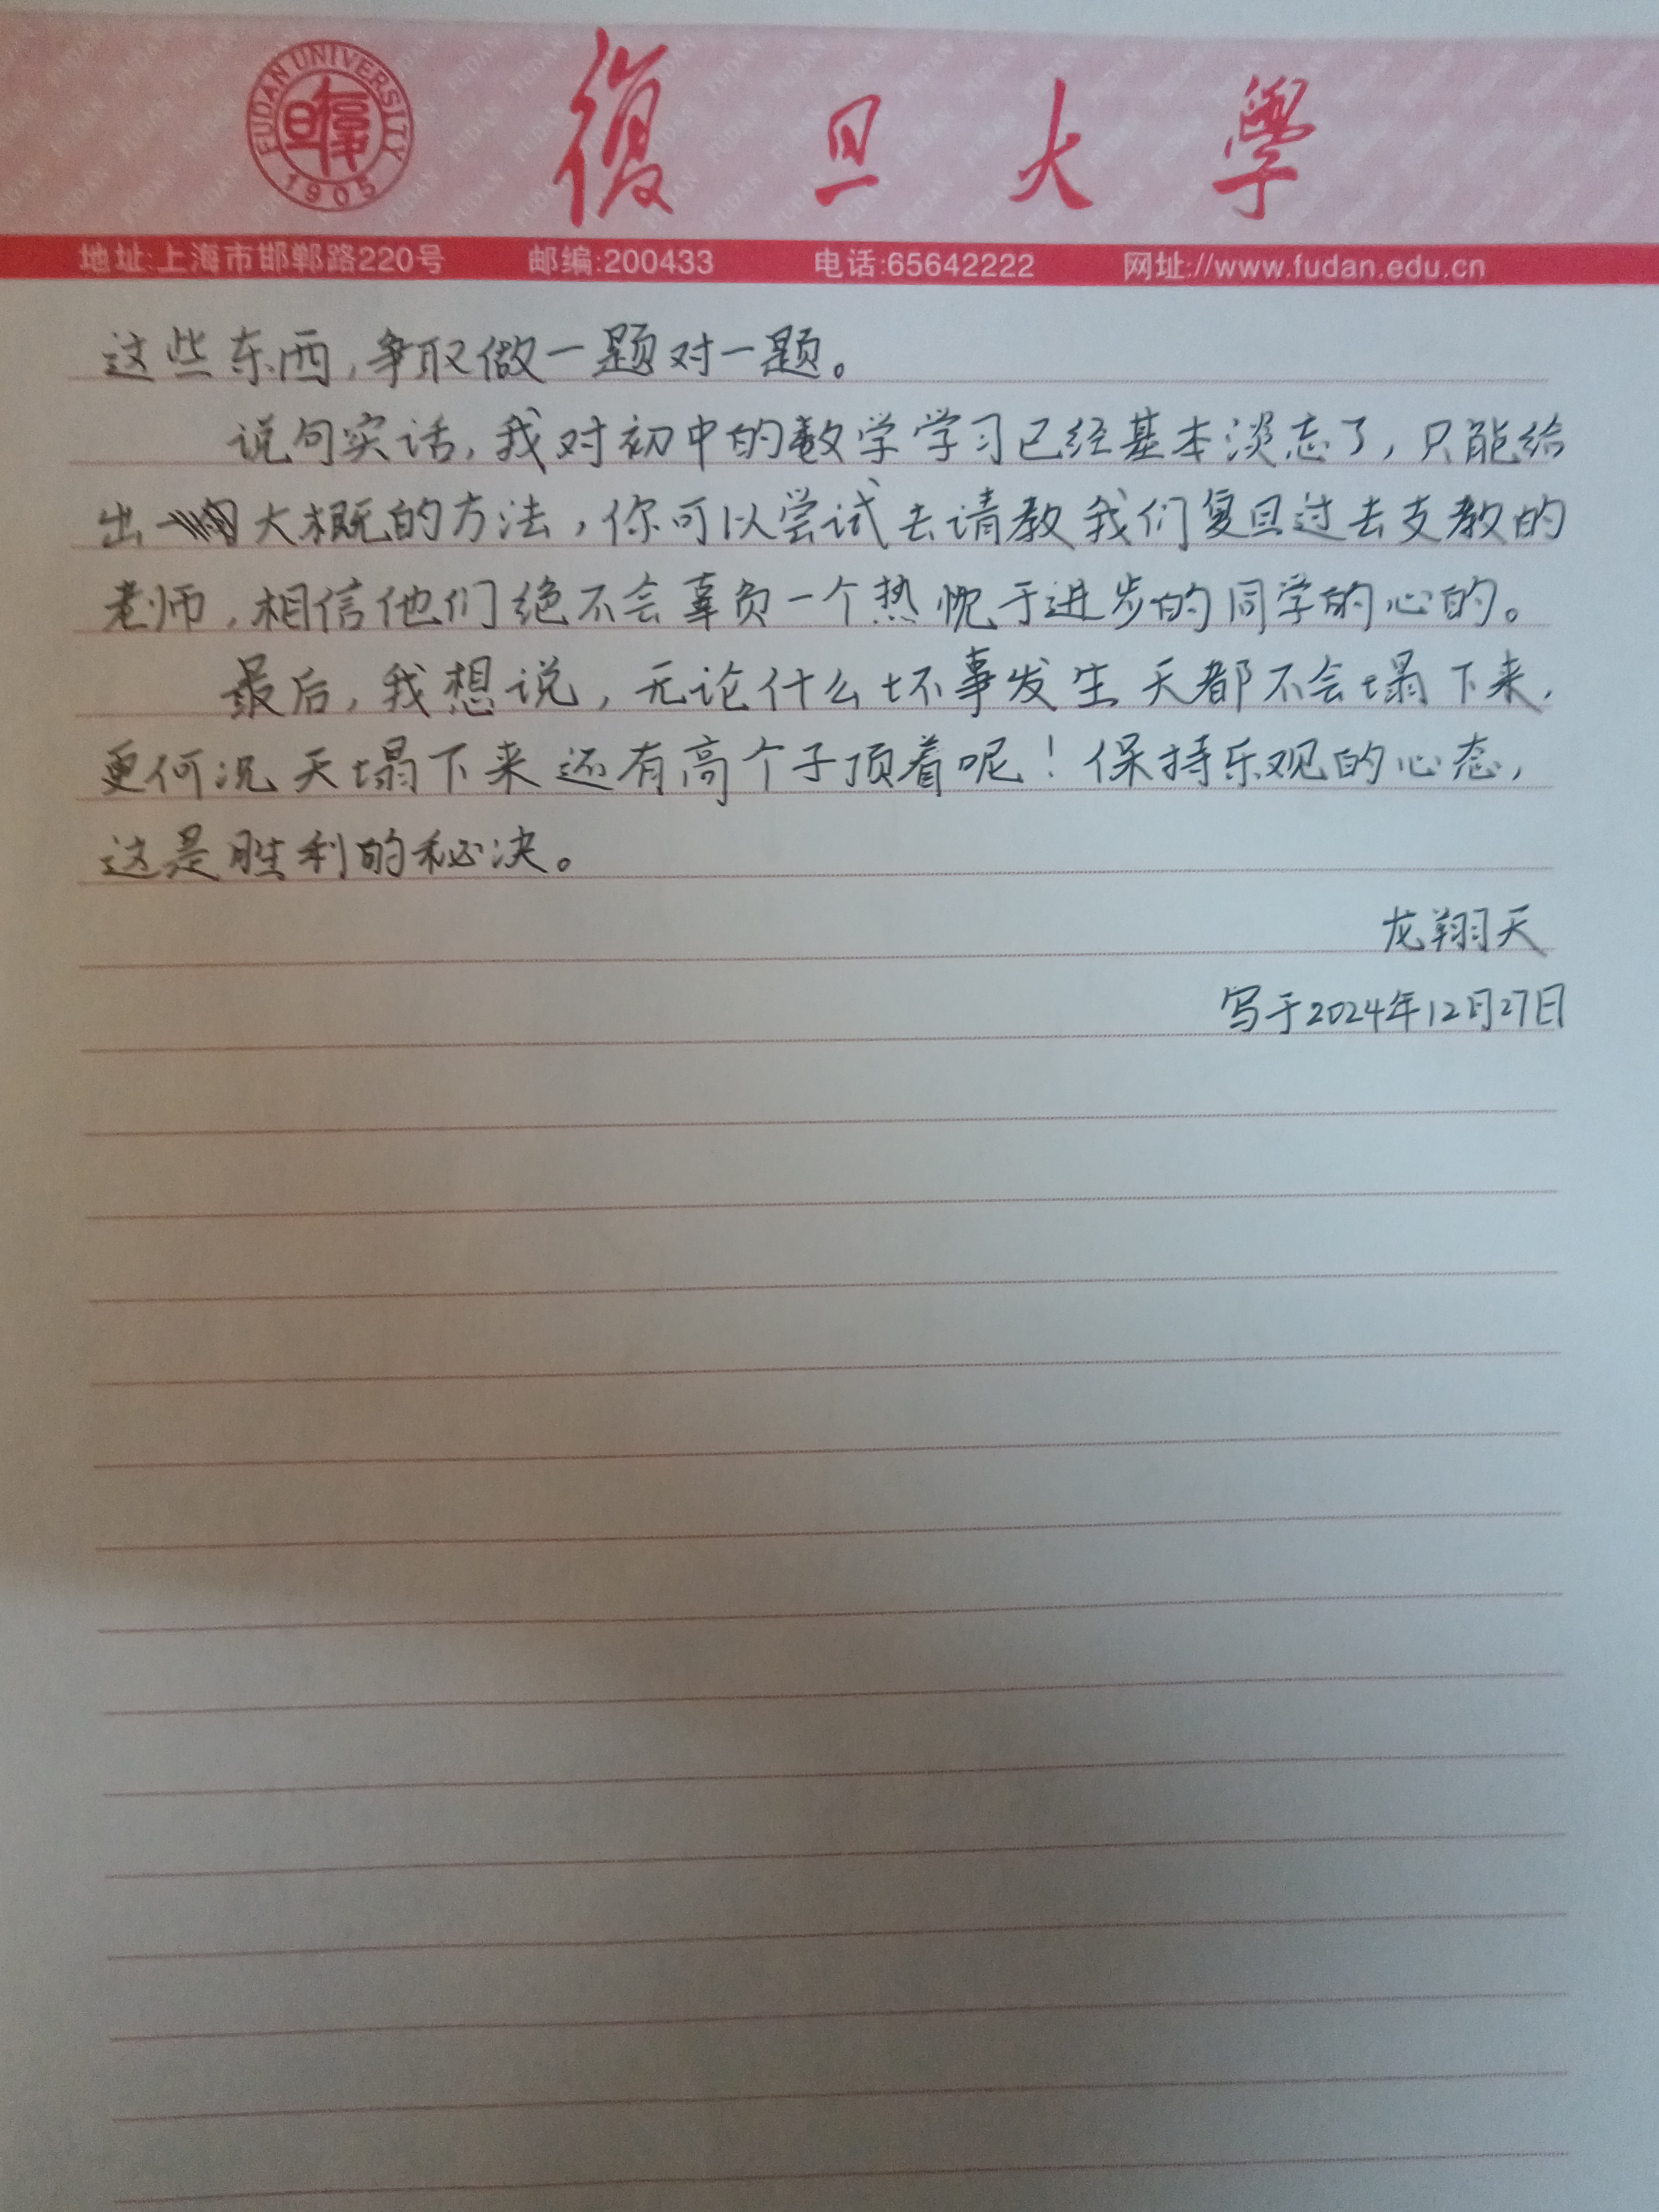 FUDAN UNIVERSITY
1905
復旦大學
地址:上海市邯郸路220号 邮编:200433 电话:65642222 网址://www.fudan.edu.cn
这些东西,争取做一题对一题。
说句实话,我对初中的数学学习已经基本淡忘了,只能给
出一大概的方法,你可以尝试去请教我们复旦过去支教的
老师,相信他们绝不会辜负一个热忱于进步的同学的心的。
最后,我想说,无论什么坏事发生天都不会塌下来,
更何况天塌下来还有高个子顶着呢!保持乐观的心态,
这是胜利的秘决。
龙翔天
写于2024年12月27日